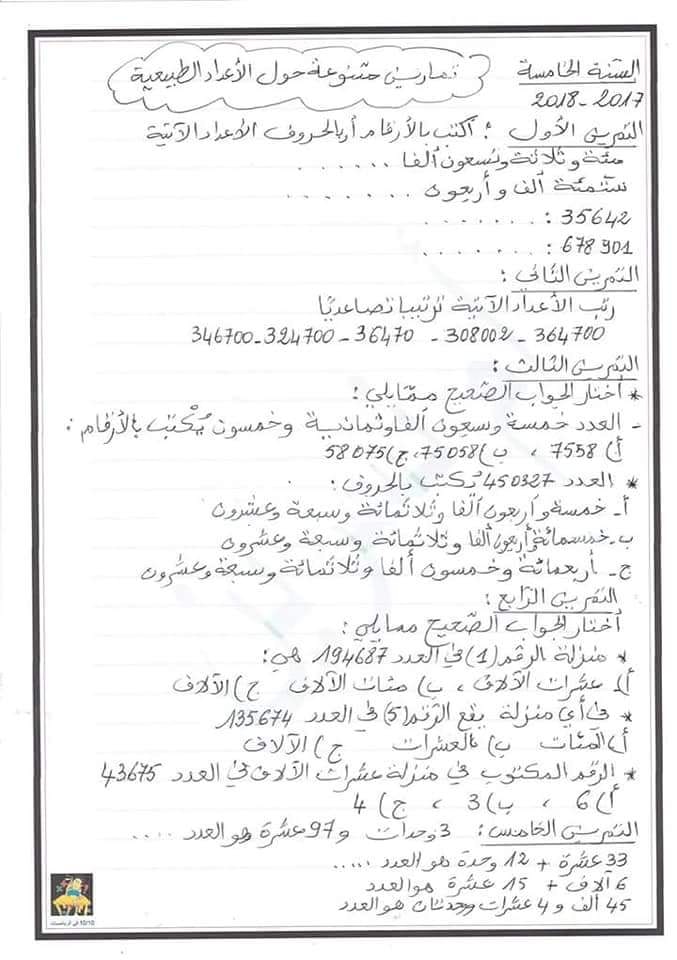 السنة الخامسة
تمارين متنوعة حول الأعداد الطبيعية
2017-2018
التمرين الأول : أكتب بالأرقام أو بالحروف الأعداد الآتية
مئة وثلاثة وتسعون ألفا .......
ستمئة ألف وأربعون ........
35642 : .......
678901 : .......
التمرين الثاني :
رتب الأعداد الآتية ترتيبا تصاعديا
364700 - 308002 - 36470 - 324700 - 346700
التمرين الثالث :
* أختار الجواب الصحيح ممايلي :
- العدد خمسة وسبعون ألفا وثمانية وخمسون يُكْتب بالأرقام :
أ) 7558 ، ب) 75058 ، ج) 58075
* العدد 450327 يُكتب بالحروف :
أ- خمسة وأربعون ألفا وثلاثمائة وسبعة وعشرون
ب- خمسمائة وأربعون ألفا وثلاثمائة وسبعة وعشرون
ج- أربعمائة وخمسون ألفا وثلاثمائة وسبعة وعشرون
التمرين الرابع :
أختار الجواب الصحيح ممايلي :
* منزلة الرقم (1) في العدد 194687 هي :
أ) عشرات الآلاف ، ب) مئات الآلاف ج) الآلاف
* في أي منزلة يقع الرقم (5) في العدد 135674
أ) المئات ب) العشرات ج) الآلاف
* الرقم المكتوب في منزلة عشرات الآلاف في العدد 43675
أ) 6 ، ب) 3 ، ج) 4
التمرين الخامس : 3 وحدات و 97 عشرة هو العدد ....
33 عشرة + 12 وحدة هو العدد .....
6 آلاف + 15 عشرة هو العدد
45 ألف و 4 عشرات وحدتان هو العدد
10/10 في الرياضيات